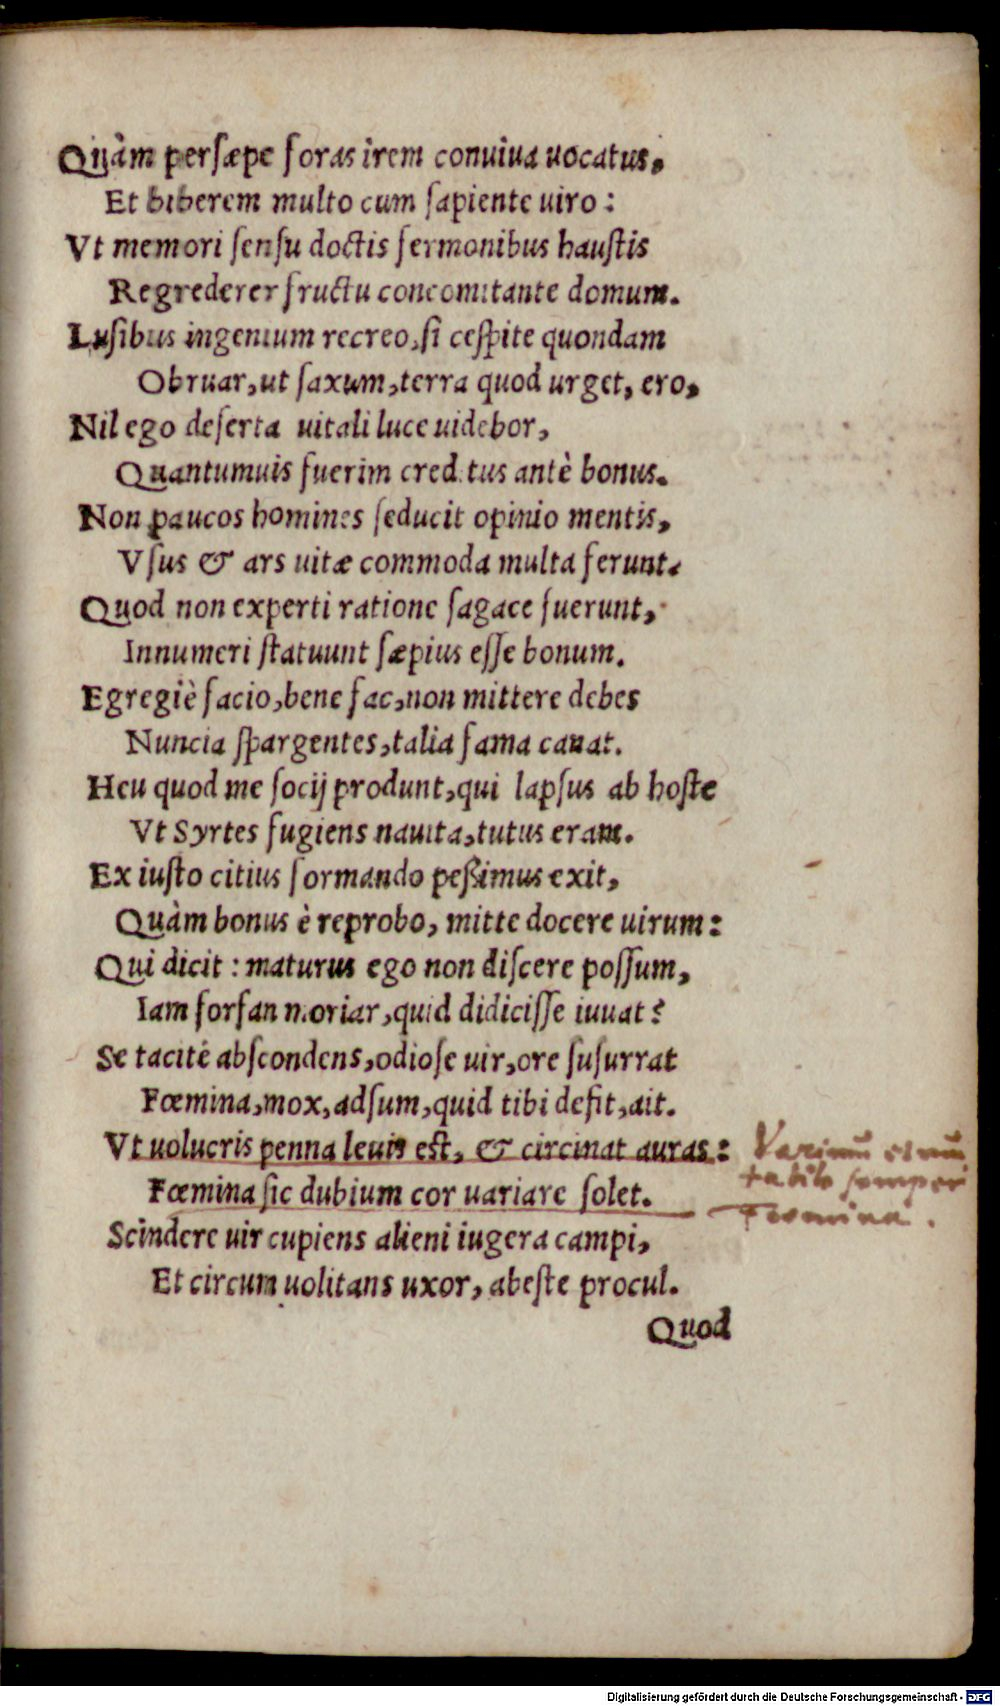 Quàm persæpe foras irem conuiua uocatus,
Et biberem multo cum sapiente uiro:
Vt memori sensu doctis sermonibus haustis
Regrederer fructu concomitante domum.
Lusibus ingenium recreo, si cespite quondam
Obruar, ut saxum, terra quod urget, ero,
Nil ego deserta uitali luce uidebor,
Quantumuis fuerim creditus antè bonus.
Non paucos homines seducit opinio mentis,
Vsus & ars uitæ commoda multa ferunt.
Quod non experti ratione sagace fuerunt,
Innumeri statuunt sæpius esse bonum.
Egregiè facio, bene fac, non mittere debes
Nuncia spargentes, talia fama canat.
Heu quod me socij produnt, qui lapsus ab hoste
Vt Syrtes fugiens nauita, tutus eram.
Ex iusto citius formando peßimus exit,
Quàm bonus è reprobo, mitte docere uirum:
Qui dicit: maturus ego non discere possum,
Iam forsan moriar, quid didicisse iuuat?
Se tacitè abscondens, odiose uir, ore susurrat
Fœmina, mox, adsum, quid tibi defit, ait.
Vt uolucris penna leuis est, & circinat auras:
Fœmina sic dubium cor uariare solet.
Scindere uir cupiens alieni iugera campi,
Et circum uolitans uxor, abeste procul.
Quod
Varium et mu
tabile semper
Foemina.
Digitalisierung gefördert durch die Deutsche Forschungsgemeinschaft - DFG